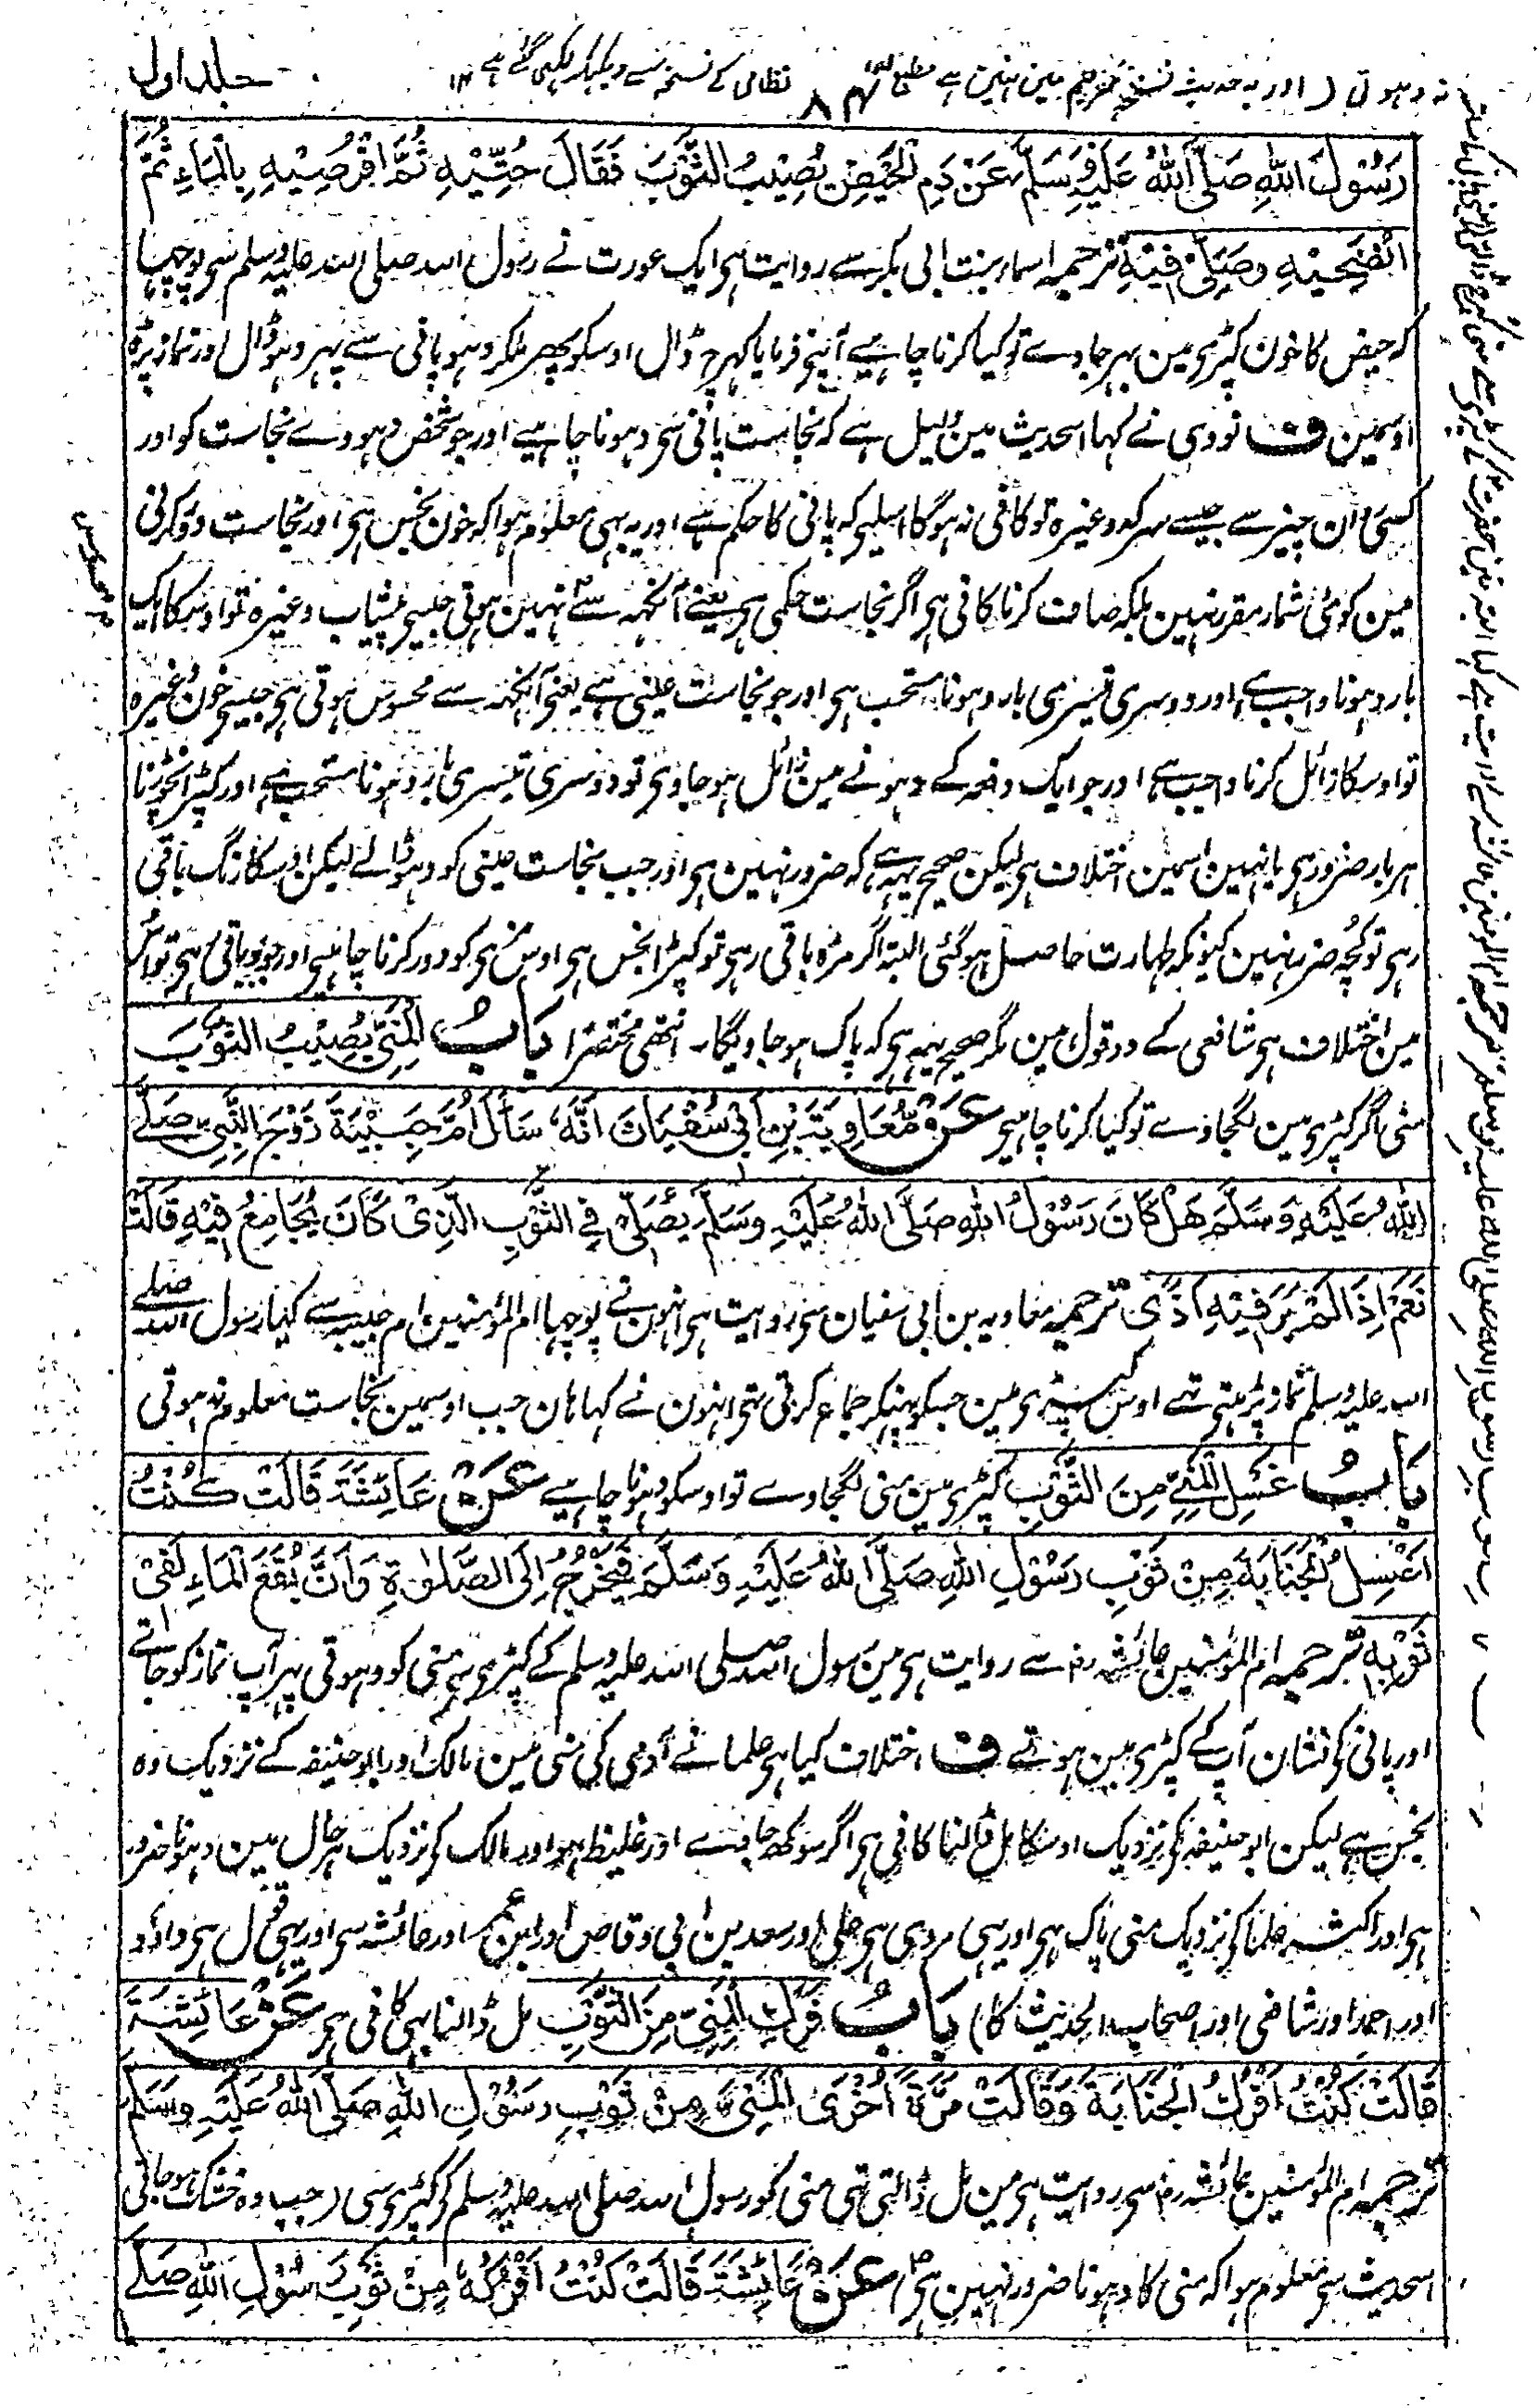 نہ دہوتی) اور یہ حدیث نسخہ مترجم مین نہین ہے مطبع نظامی کے نسخہ سے دیکہکر لکہی گئے ہے ۱۲
۸۴
جلد اول
رَسُوْلَ اللّٰهِ صَلَّى اللّٰهُ عَلَيْهِ وَسَلَّمَ عَنْ دَمِ الْحَيْضِ يُصِيْبُ الثَّوْبَ فَقَالَ حُتِّيْهِ ثُمَّ اقْرُصِيْهِ بِالْمَاءِ ثُمَّ
انْضَحِيْهِ وَصَلِّيْ فِيْهِ ترجمہ اسماء بنت ابی بکر سے روایت ہی ایک عورت نے رسول اللہ صلی اللہ علیہ وسلم سی پوچہا
کہ حیض کا خون کپڑی مین بہر جاوے تو کیا کرنا چاہیے آپنی فرمایا کہرچ ڈال اوسکو پھر ملکر دہو پانی سے پہر دہو ڈال اور نماز پڑہ
اوسمین ف نووی نے کہا اسحدیث مین دلیل ہے کہ نجاست پانی سی دہونا چاہیے اور جو شخص دہووے نجاست کو اور
کسی ان چیز سے جیسے سرکہ وغیرہ تو کافی نہ ہوگا اسلیی کہ پانی کا حکم ہے اور یہ بہی معلوم ہوا کہ خون نجس ہی اور نجاست دور کرنی
مین کوئی شمار مقرر نہین بلکہ صاف کرنا کافی ہی اگر نجاست حکمی ہی یعنے آنکہہ سے نہین ہوتی جیسی پیشاب وغیرہ تو اوسکا ایک
بار دہونا واجب ہے اور دوسری تیسری بار دہونا مستحب ہی اور جو نجاست عینی ہے یعنی آنکہہ سے محسوس ہوتی ہی جیسی خون وغیرہ
تو اوسکا زائل کرنا واجب ہے اور جو ایک دفعہ کے دہونے مین زائل ہو جاوی تو دوسری تیسری بار دہونا مستحب ہے اور کپڑا نچوڑنا
ہر بار ضرور ہی یا نہین اسمین اختلاف ہی لیکن صحیح یہہ ہے کہ ضرور نہین ہی اور جب نجاست عینی کو دہو ڈالے لیکن اوسکا رنگ باقی
رہی تو کچہ ضرر نہین کیونکہ طہارت حاصل ہو گئی البتہ اگر مزہ باقی رہی تو کپڑا نجس ہی اوس مزی کو دور کرنا چاہیی اور جو بو باقی رہی تو اس
مین اختلاف ہی شافعی کے دو قول مین مگر صحیح یہہ ہی کہ پاک ہو جاویگا۔ انتہی مختصرا بَابُ الْمَنِيِّ يُصِيْبُ الثَّوْبَ
منی اگر کپڑی مین لگجاوے تو کیا کرنا چاہیی عَنْ مُعَاوِيَةَ بْنِ اَبِيْ سُفْيَانَ اَنَّهُ سَأَلَ اُمَّ حَبِيْبَةَ زَوْجَ النَّبِيِّ صَلَّى
اللّٰهُ عَلَيْهِ وَسَلَّمَ هَلْ كَانَ رَسُوْلُ اللّٰهِ صَلَّى اللّٰهُ عَلَيْهِ وَسَلَّمَ يُصَلِّيْ فِي الثَّوْبِ الَّذِيْ كَانَ يُجَامِعُ فِيْهِ قَالَتْ
نَعَمْ اِذَا لَمْ يَرَ فِيْهِ اَذًى ترجمہ معاویہ بن ابی سفیان سے روایت ہی انہون نے پوچہا ام المؤمنین ام حبیبہ سے کہا رسول اللہ صلے
اللہ علیہ وسلم نماز پڑہتی تھے اوس کپڑی مین جسکو پہنکر جماع کرتی تہی انہون نے کہا ہان جب اوسمین نجاست معلوم نہ ہوتی
بَابُ غَسْلِ الْمَنِيِّ مِنَ الثَّوْبِ کپڑی مین منی لگجاوے تو اوسکو دہونا چاہیے عَنْ عَائِشَةَ قَالَتْ كُنْتُ
اَغْسِلُ الْجَنَابَةَ مِنْ ثَوْبِ رَسُوْلِ اللّٰهِ صَلَّى اللّٰهُ عَلَيْهِ وَسَلَّمَ فَيَخْرُجُ اِلَى الصَّلٰوةِ وَاَنَّ بُقَعَ الْمَاءِ لَفِيْ
ثَوْبِهِ ترجمہ ام المؤمنین عائشہ رض سے روایت ہی مین رسول اللہ صلی اللہ علیہ وسلم کے کپڑی سے منی کو دہوتی پہر آپ نماز کو جاتے
اور پانی کو نشان آپ کے کپڑی مین ہوتے ف اختلاف کیا ہی علما نے آدمی کی منی مین مالک اور ابو حنیفہ کے نزدیک وہ
نجس ہے لیکن ابو حنیفہ کی نزدیک اوسکا مل ڈالنا کافی ہی اگر سوکھ جاوے اور غلیظ ہو اور مالک کی نزدیک ہر حال مین دہونا ضرور
ہی اور اکثر علما کی نزدیک منی پاک ہی اور یہی مروی ہی علی اور سعد بن ابی وقاص اور ابن عمر اور عائشہ سی اور یہی قول ہی داؤد
اور احمد اور شافعی اور اصحاب الحدیث کا) بَابُ فَرْكِ الْمَنِيِّ مِنَ الثَّوْبِ مل ڈالنا بہی کافی ہی عَنْ عَائِشَةَ
قَالَتْ كُنْتُ اَفْرُكُ الْجَنَابَةَ وَقَالَتْ مَرَّةً اُخْرٰى الْمَنِيَّ مِنْ ثَوْبِ رَسُوْلِ اللّٰهِ صَلَّى اللّٰهُ عَلَيْهِ وَسَلَّمَ
ترجمہ ام المؤمنین عائشہ رض سی روایت ہی مین مل ڈالتی تہی منی کو رسول اللہ صلی اللہ علیہ وسلم کی کپڑی سی (جب وہ خشک ہو جاتی
اسحدیث سی معلوم ہوا کہ منی کا دہونا ضرور نہین ہی) عَنْ عَائِشَةَ قَالَتْ كُنْتُ اَفْرُكُهُ مِنْ ثَوْبِ رَسُوْلِ اللّٰهِ صَلَّى